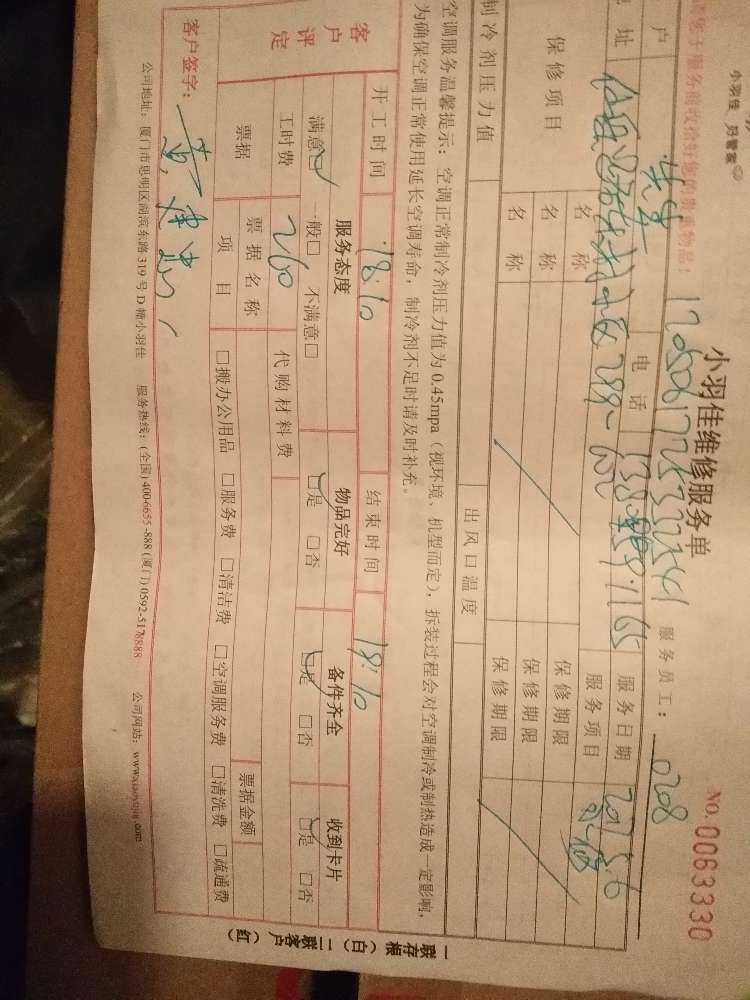 小羽佳 好管家
小羽佳维修服务单
NO. 0063330
服务前收拾好您的贵重物品:
服务员工: 0208
户
电话
服务日期
址
服务项目
保修项目 名称 保修期限
名称 保修期限
名称 保修期限
制冷剂压力值 出风口温度
空调服务温馨提示: 空调正常制冷剂压力值为0.45mpa (视环境、机型而定), 拆装过程会对空调制冷或制热造成一定影响,
为确保空调正常使用延长空调寿命, 制冷剂不足时请及时补充。
开工时间 18:10 结束时间 19:10
客户评定 服务态度 物品完好 备件齐全 收到卡片
满意□ 一般□ 不满意□ □是 □否 □是 □否 □是 □否
工时费 260 代购材料费
票据 票据名称 票据金额
项目 □搬办公用品 □服务费 □清洁费 □空调服务费 □清洗费 □疏通费
客户签字:
公司地址: 厦门市思明区湖滨东路319号D幢小羽佳 服务热线: (全国) 400-6655-888 (厦门) 0592-5178888 公司网站:
一联存根 (白) 二联客户 (红)